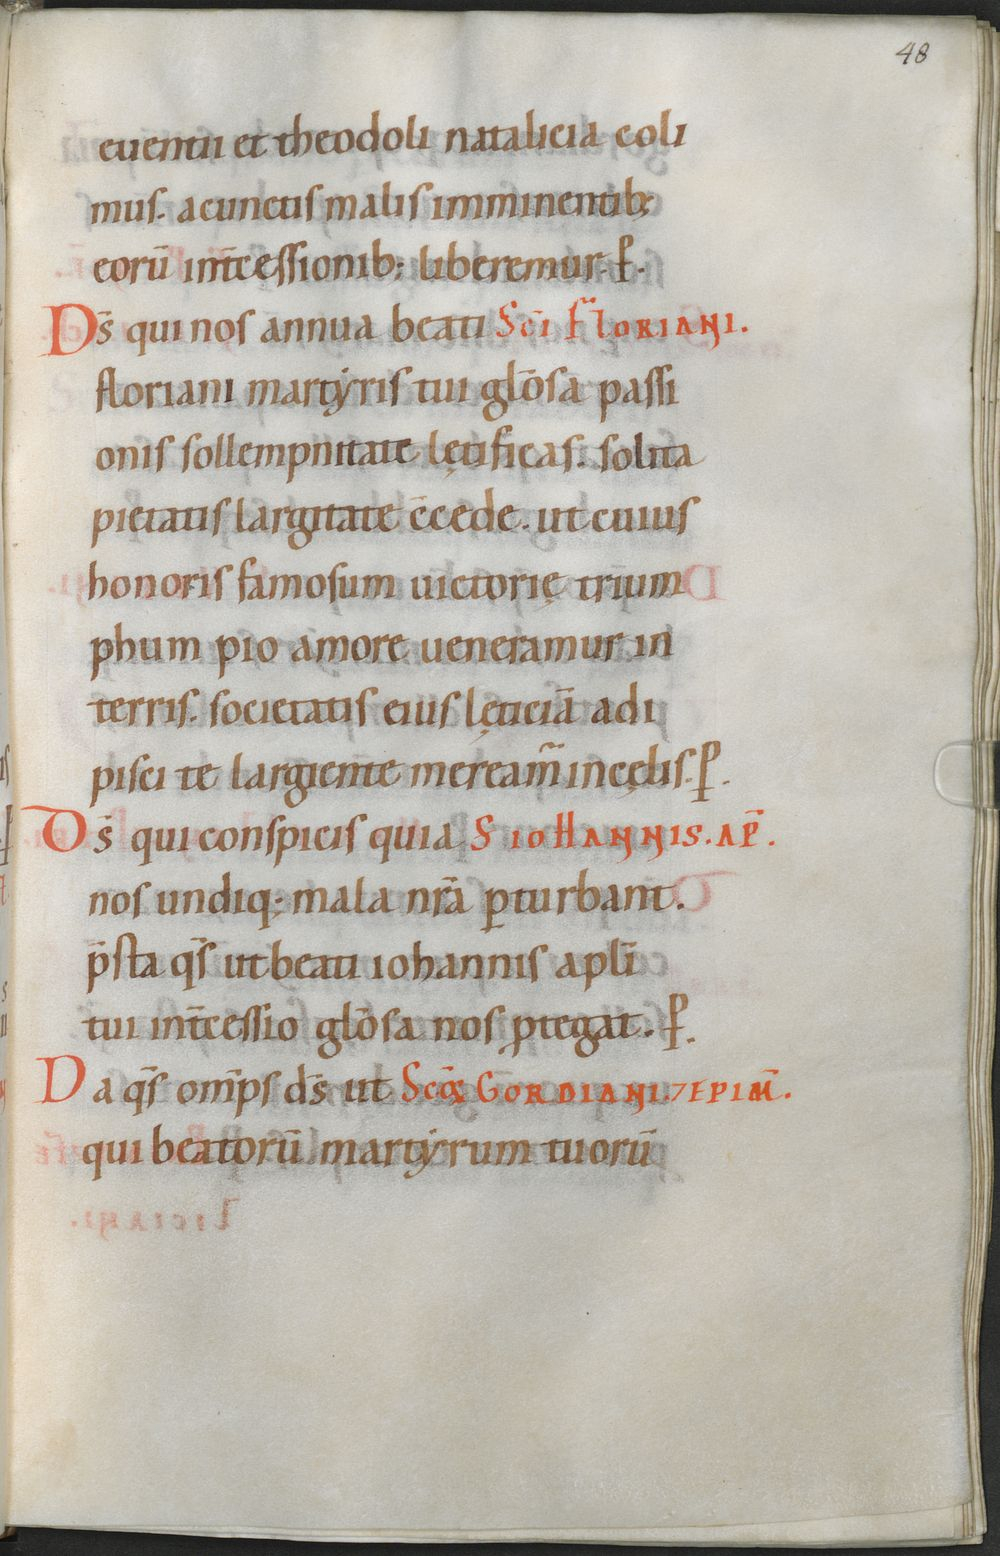 48
euentii et theodoli natalicia coli
mus. a cunctis malis imminentib;
eorū int̄cessionib; liberemur. ꝑ.
Ds̄ qui nos annua beati Sc̄i Floriani.
floriani martẏris tui glōsā passi
onis sollempnitate lętificas. solita
pietatis largitate c̄cede. ut cuius
honoris famosum uictorię trium
phum pio amore ueneramur in
terris. societatis eius lęticiā adi
pisci te largiente meream̄ in cęlis. ꝑ.
Ds̄ qui conspicis quia S ioHannis. ap̄.
nos undiq; mala nr̄a ꝑturbant.
p̄sta qs̄ ut beati iohannis apli̅
tui int̄cessio glōsa nos ꝓtegat. ꝑ.
Da qs̄ omp̄s ds̄ ut Scōꝝ Gordiani. ⁊ epim̄.
qui beatorū martẏrum tuorū